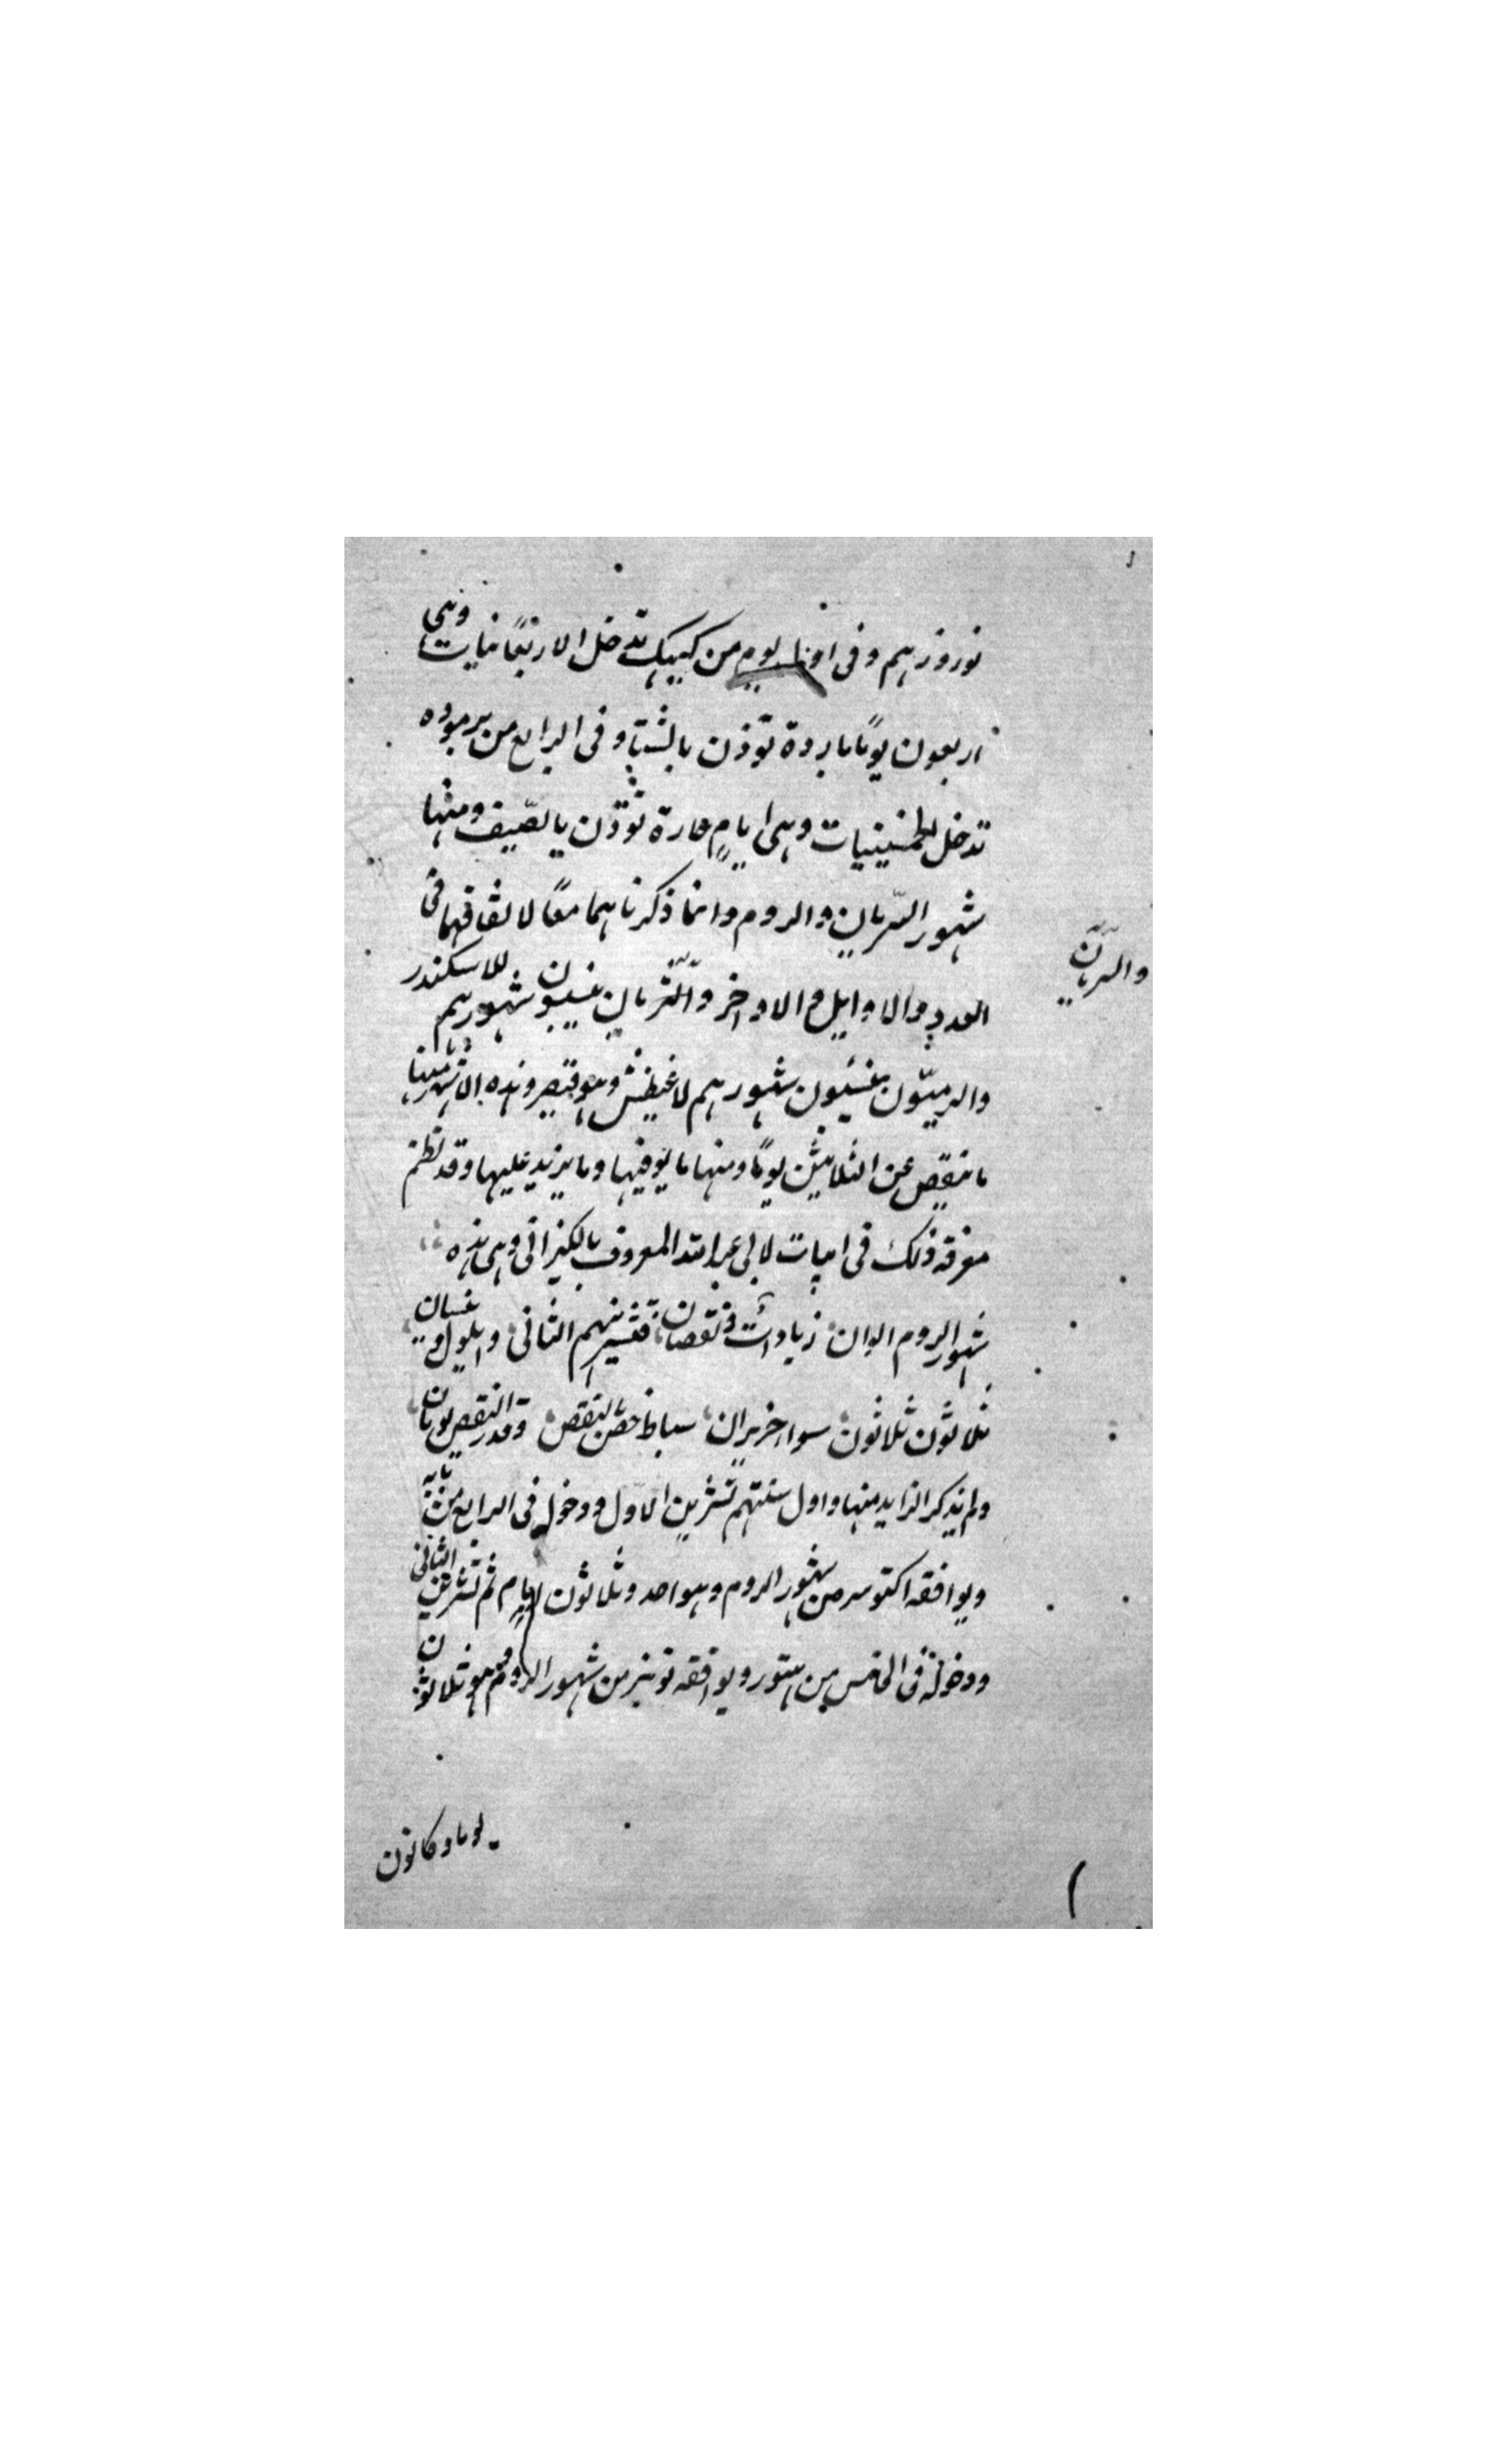 نوروزهم وفى اول يوم من كيهك تدخل الاربعانيات وهى
اربعون يومًا باردة تؤذن بالشتا وفى الرابع من برموده
تدخل الخمسينيات وهى ايام حارة تؤذن بالصّيف ومنها
شهور السّريان والروم وانما ذكرناهما معًا لاتفاقهما فى
العدد والاوايل والاواخر والسّريان ينسبون شهورهم للاسكندر
والسريان
والروميّون ينسبون شهورهم لاغيطش وهو قيصر وهذه الاشهر منها
ما ينقص عن الثلاثين يومًا ومنها ما يوفيها وما يزيد عليها وقد نظم
معرفة ذلك فى ابيات لابى عبد الله المعروف بالكيزانى وهى هذه
شهور الروم الوان زيادات ونقصان فتشرينهم الثانى وايلول ونيسان
ثلاثون ثلاثون سواء حزيران سباط خص بالنقص وقدر النقص يومان
ولم يذكر الزايد منها واول سنتهم تشرين الاوّل ودخوله فى الرابع من بابه
ويوافقه اكتوبر من شهور الروم وهو احد وثلاثون ايام ثم تشرين الثانى
ودخوله فى الخامس من هتور ويوافقه نونبر من شهور الروم وهو ثلاثون
يوما وكانون